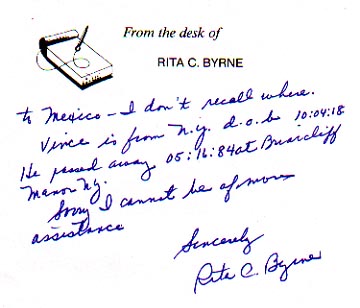 From the desk of
RITA C. BYRNE
to Mexico - I don't recall where.
Vince is from N.Y. d.o.b 10:04:18
He passed away 05:16:84 at Briarcliff
Manor Ny.
Sorry I cannot be of more
assistance
Sincerely
Rita C. Byrne